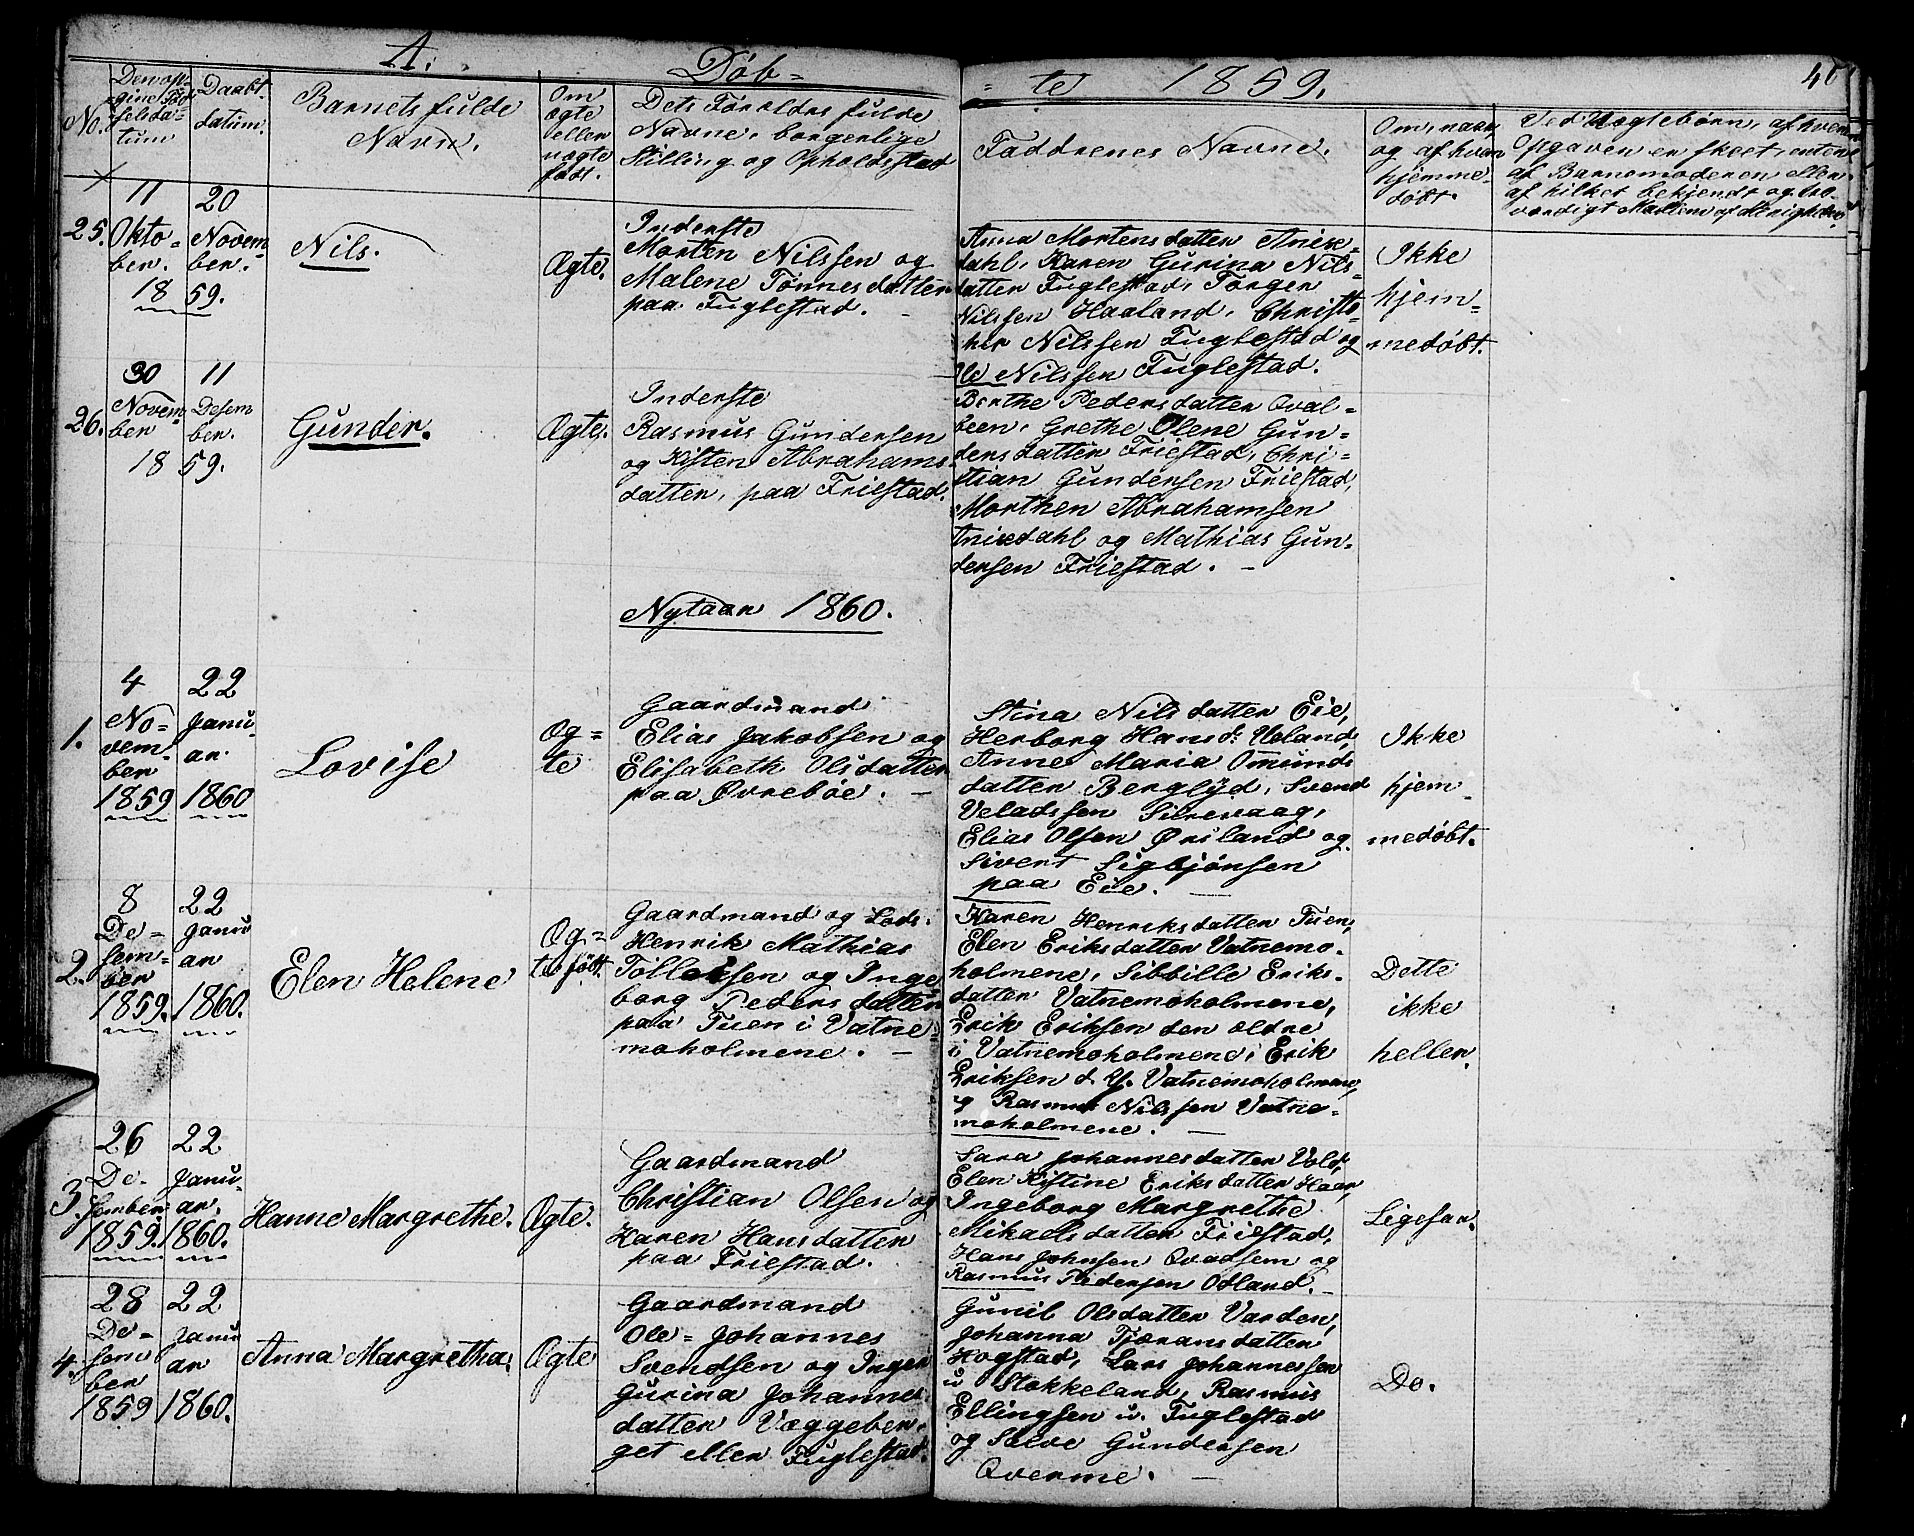 A. Døb= = te 1859. 40
No.
Den op-
givne Fød-
selsda-
tum
Daabs-
datum.
Barnets fulde
Navn.
Om
ægte
eller
uægte
født.
Dets Forældres fulde
Navne, borgerlige
Stilling og Opholdsstad
Faddrenes Navne.
Om, naar,
og af hvem
hjemme-
døbt.
Ved Uægtebørn, af hvem
Opgaven er skeet, enten
af Barnemoderen eller
af hilket bekjendt og tro-
værdigt Medlem af Menigheden.
25.
11
Okto-
ber.
20
Novem-
ber.
1859.
Nils.
Ægte.
Inderste
Morten Nilssen og
Malene Tønnesdatter
paa Fuglestad. -
Anna Mortensdatter Anix-
dahl, Karen Gurina Nils-
datter Fuglestad, Torger
Nilssen Haaland, Christo-
her Nilssen Fuglestad og
Ole Nilssen Fuglestad.
Ikke
hjem-
medøbt.
26.
30
Novem-
ber
11
Desem
ber.
1859.
Gunder.
Ægte.
Inderste
Rasmus Gundersen
og Kisten Abrahams-
datter, paa Friestad.
Berthe Pedersdatter Qval-
been, Grethe Olene Gun-
dersdatter Friestad, Chri-
stian Gundersen Friestad,
Morthen Abrahamsen
Anixdahl og Mathias Gun-
dersen Friestad. -
Nytaar 1860.
1.
4
No-
vem-
ber
1859
22
Janu-
ar.
1860
Lovise
Æg=
te
Gaardmand
Elias Jakobsen og
Elisabeth Olsdatter
paa Øvrebøe. -
Stina Nilsdatter Eie,
Herborg Hansd: Ueland,
Anne Maria Omunds
datter Berglyd, Svend
Veladssen Sirevaag,
Elias Olsen Ørsland og
Sivert Sigbjønsen
paa Eie. -
Ikke
hjem-
medøbt.
2.
8
De-
sem-
ber
1859.
22
Janu
ar
1860.
Elen Helene
Æg=
te født.
Gaardmand og Lods.
Henrik Mathias
Tollefsen og Inge-
borg Pedersdatter
paa Tuen i Vatne-
moholmene. -
Karen Henriksdatter Tuen,
Elen Eriksdatter Vatnemo-
holmene, Sibbille Eriks-
datter Vatnemoholmene,
Erik Eriksen den ældre
i Vatnemoholmene, Erik
Eriksen d. Y. Vatnemoholmene
og Rasmus Nilssen Vatne-
moholmene. -
Dette
ikke
heller.
3.
26
De-
sember
1859.
22
Janu-
ar.
1860.
Hanne Margrethe.
Ægte.
Gaardmand
Christian Olsen og
Karen Hansdatter
paa Friestad.
Sara Johannesdatter Vold,
Elen Kistine Eriksdatter Haar,
Ingeborg Margrethe
Mikaelsdatter Friestad,
Hans Johnsen Qvadsem og
Rasmus Pedersen Odland. -
Ligesaa.
4.
28
De-
sem
ber
1859
22
Janu
ar
1860.
Anna Margretha.
Ægte
Gaardmand
Ole-Johannes
Svendsen og Inger
Gurina Johannes-
datter Væggeber-
get eller Fuglestad.
Gunil Olsdatter Varden,
Johanna Tjæransdatter
Hogstad, Lars Johannessen
u Stokkeland, Rasmus
Ellingsen u. Fuglestad
og Salve Gundersen
Qverme. -
Do.